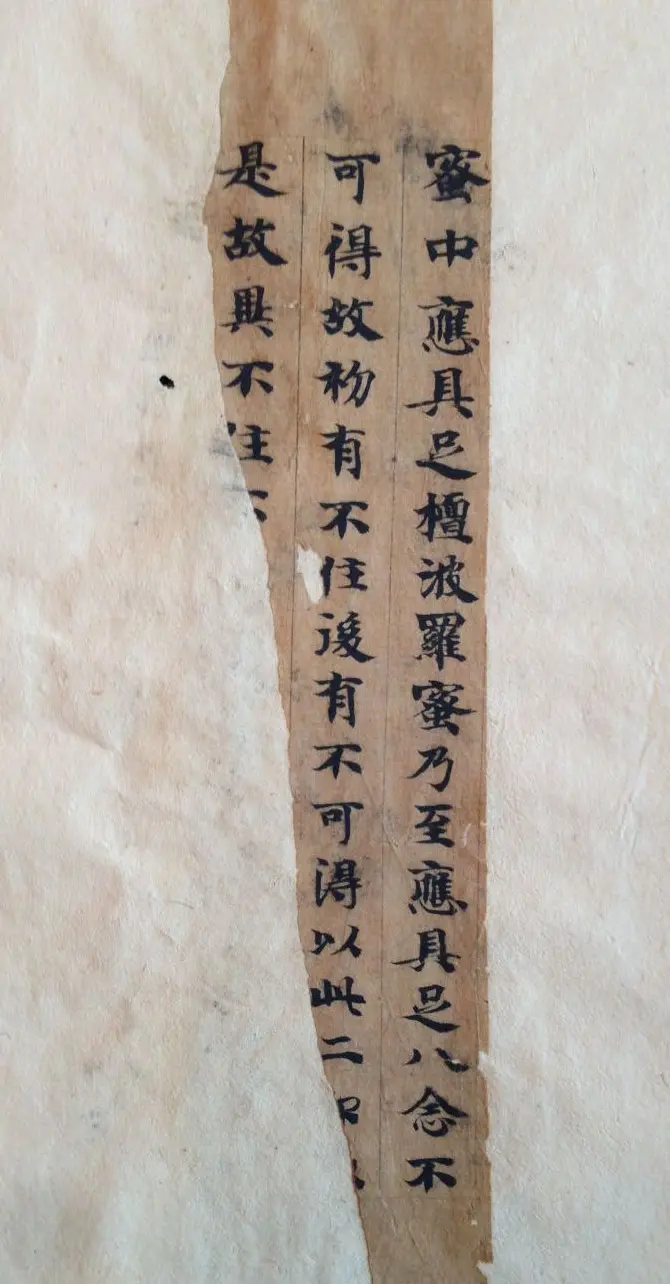 蜜中應具足檀波羅蜜乃至應具足八念不
可得故初有不住後有不可得以此二
是故異不住